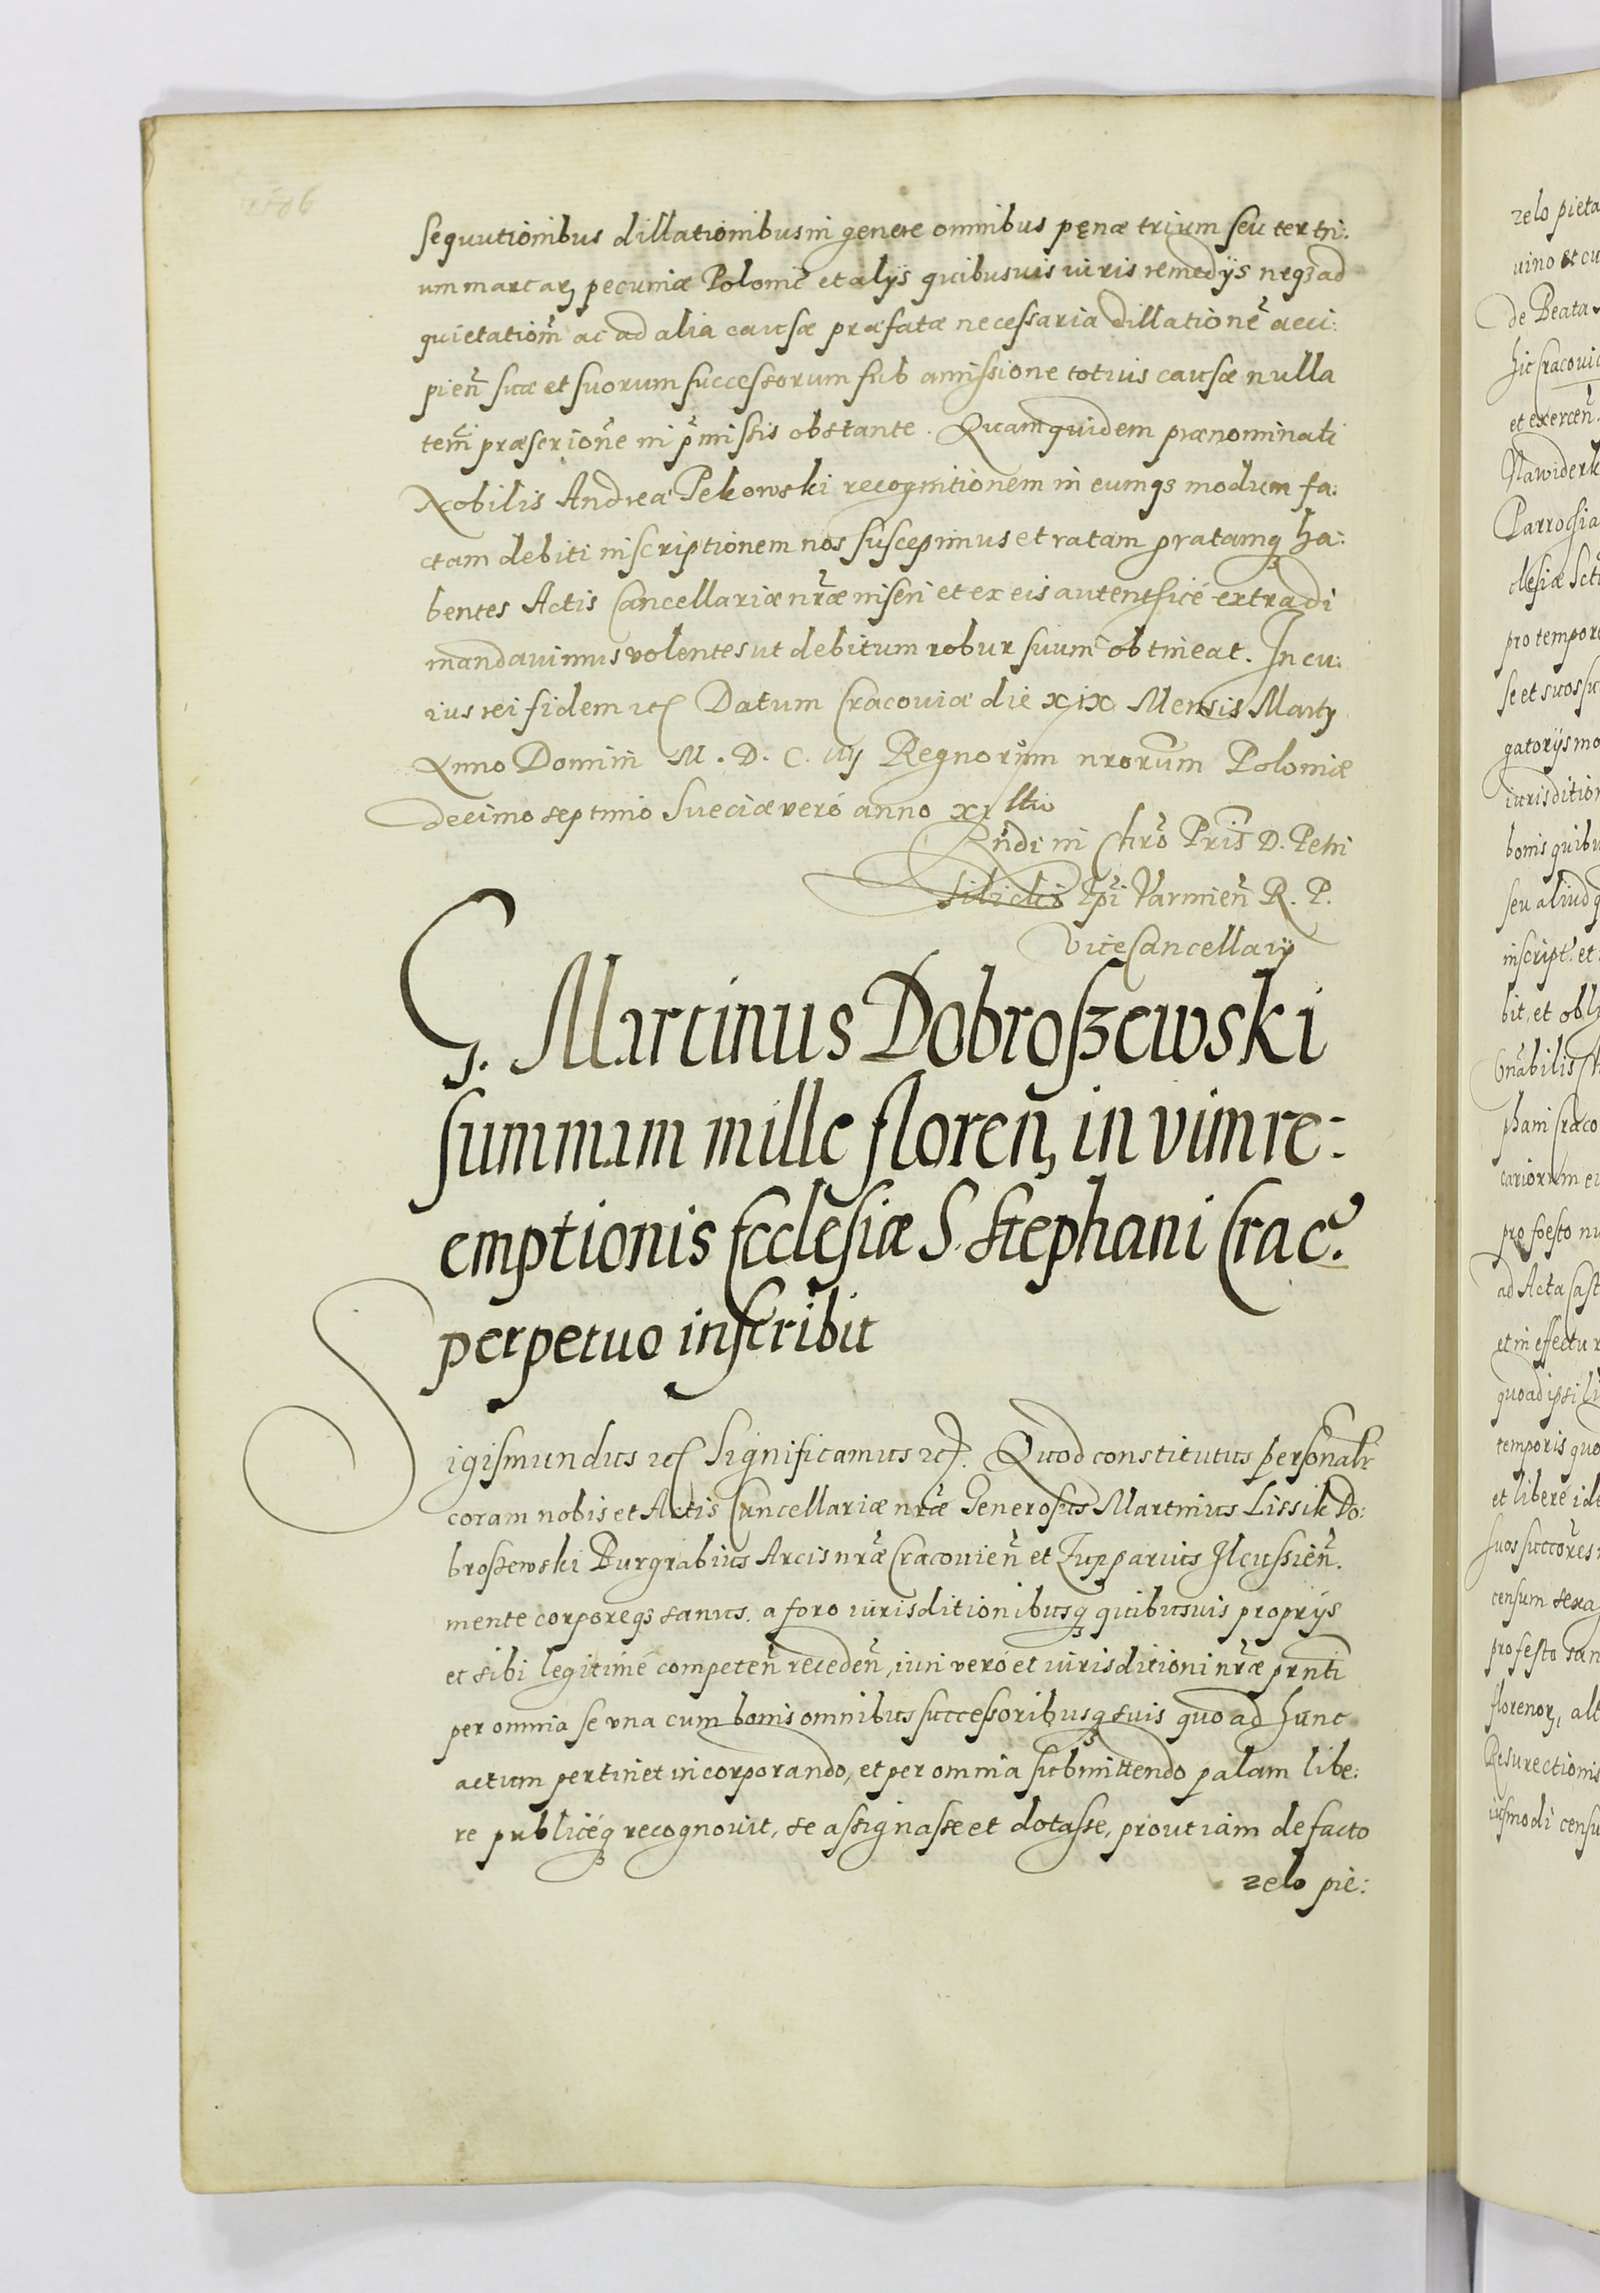 sequutionibus dillationibus in genere omnibus pęnæ trium seu ter tri:
um marcarꝫ pecuniæ Polonic̃ et alijs quibusuis iuris remedijs neqꝫ ad
quietation̄ ac ad alia causæ præfatæ necessaria dillationē acci:
pien̄ suæ et suorum successorum sub amissione totius causæ nulla
tem̄ præscrione in p̄missis obstante. Quamquidem prænominati
Nobilis Andreæ Pekowski recognitionem in eumqꝫ modum fa:
ctam debiti inscriptionem nos suscepimus et ratam gratamqꝫ ha:
bentes Actis Cancellariæ nr̄æ inseri et ex eis autenthicé extradi
mandauimus volentes ut debitum robur suum obtineat. In cu:
ius rei fidem etc Datum Cracouiæ die xix Mensis Martij
Anno Domini M. D. C. iiij Regnorum nrorum Poloniæ
decimo septimo Sueciæ veró anno xi
Rn̄di in Chrō Pris D. Petri
Tilicki Epi Varmien̄ R. P.
ViceCancellarij
G. Martinus Dobroszewski
summam mille floren̄, in vim re:
emptionis Ecclesiæ S. Stephani Crac.
perpetuo inscribit
Sigismundus etc Significamus etc. Quod constitutus personalr
coram nobis et Actis Cancellariæ nr̄æ Generosus Martinus Lissik Do:
broszewski Burgrabius Arcis nr̄æ Cracouien̄ et Zupparius Ilcussien̄.
mente corporeqꝫ sanus. a foro iurisditionibusqꝫ quibusuis proprijs
et sibi legitimé competen̄ receden̄, iuri veró et iurisditioni nr̄æ prn̄ti
per omnia se vna cum bonis omnibus successoribusqꝫ suis quo ad hunc
actum pertinet incorporando, et per omnia submittendo palam libe:
re publicéqꝫ recognouit, se assignasse et dotasse, prout iam de facto
zelo pie:
zelo pieta
uino et cu
de Beata
hic Cracouia
et exercen̄.
Nawiderk
Parrochia
clesiæ Sct
pro tempore
se et suos su
gatorijs mo
iurisdition
bonis quibu
seu aliud q
inscript. et
bit, et obl
phani Craco
cariorum e
pro foesto nu
ad Acta Cast
et in effectu r
quoad ipsi li
temporis quo
et libere id
suos succores
censum sexa
pro festo san
florenorꝫ, alt
Resurectionis
iusmodi censu